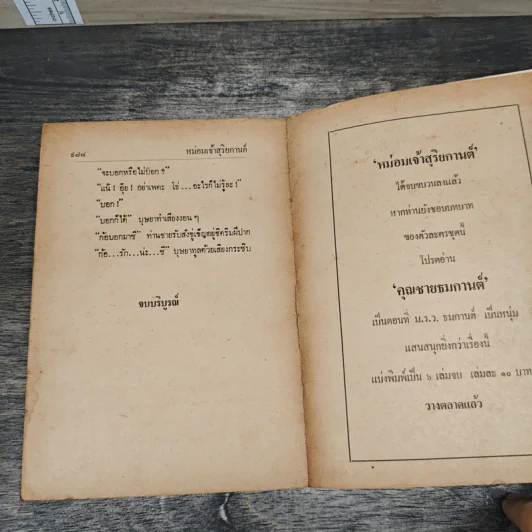 ๕๗๘ หม่อมเจ้าสุริยกานต์
"จะบอกหรือไม่บอก ?"
"แน้ ! อุ้ย ! อย่าเพคะ โธ่...อะไรก็ไม่รู้ละ !"
"บอก !"
"บอกก็ได้" บุษยาทำเสียงงอน ๆ
"ก้อบอกมาซี" ท่านชายรับสั่งขู่เข็ญอยู่ชิดริมฝีปาก
"ก้อ...รัก...น่ะ...ซี" บุษยาทูลด้วยเสียงกระซิบ
จบบริบูรณ์
'หม่อมเจ้าสุริยกานต์'
ได้จบขบวนลงแล้ว
หากท่านยังชอบบทบาท
ของตัวละครชุดนี้
โปรดอ่าน
'คุณชายธมกานต์'
เป็นตอนที่ ม.ร.ว. ธมกานต์ เป็นหนุ่ม
แสนสนุกยิ่งกว่าเรื่องนี้
แบ่งพิมพ์เป็น ๖ เล่มจบ เล่มละ ๑๐ บาท
วางตลาดแล้ว